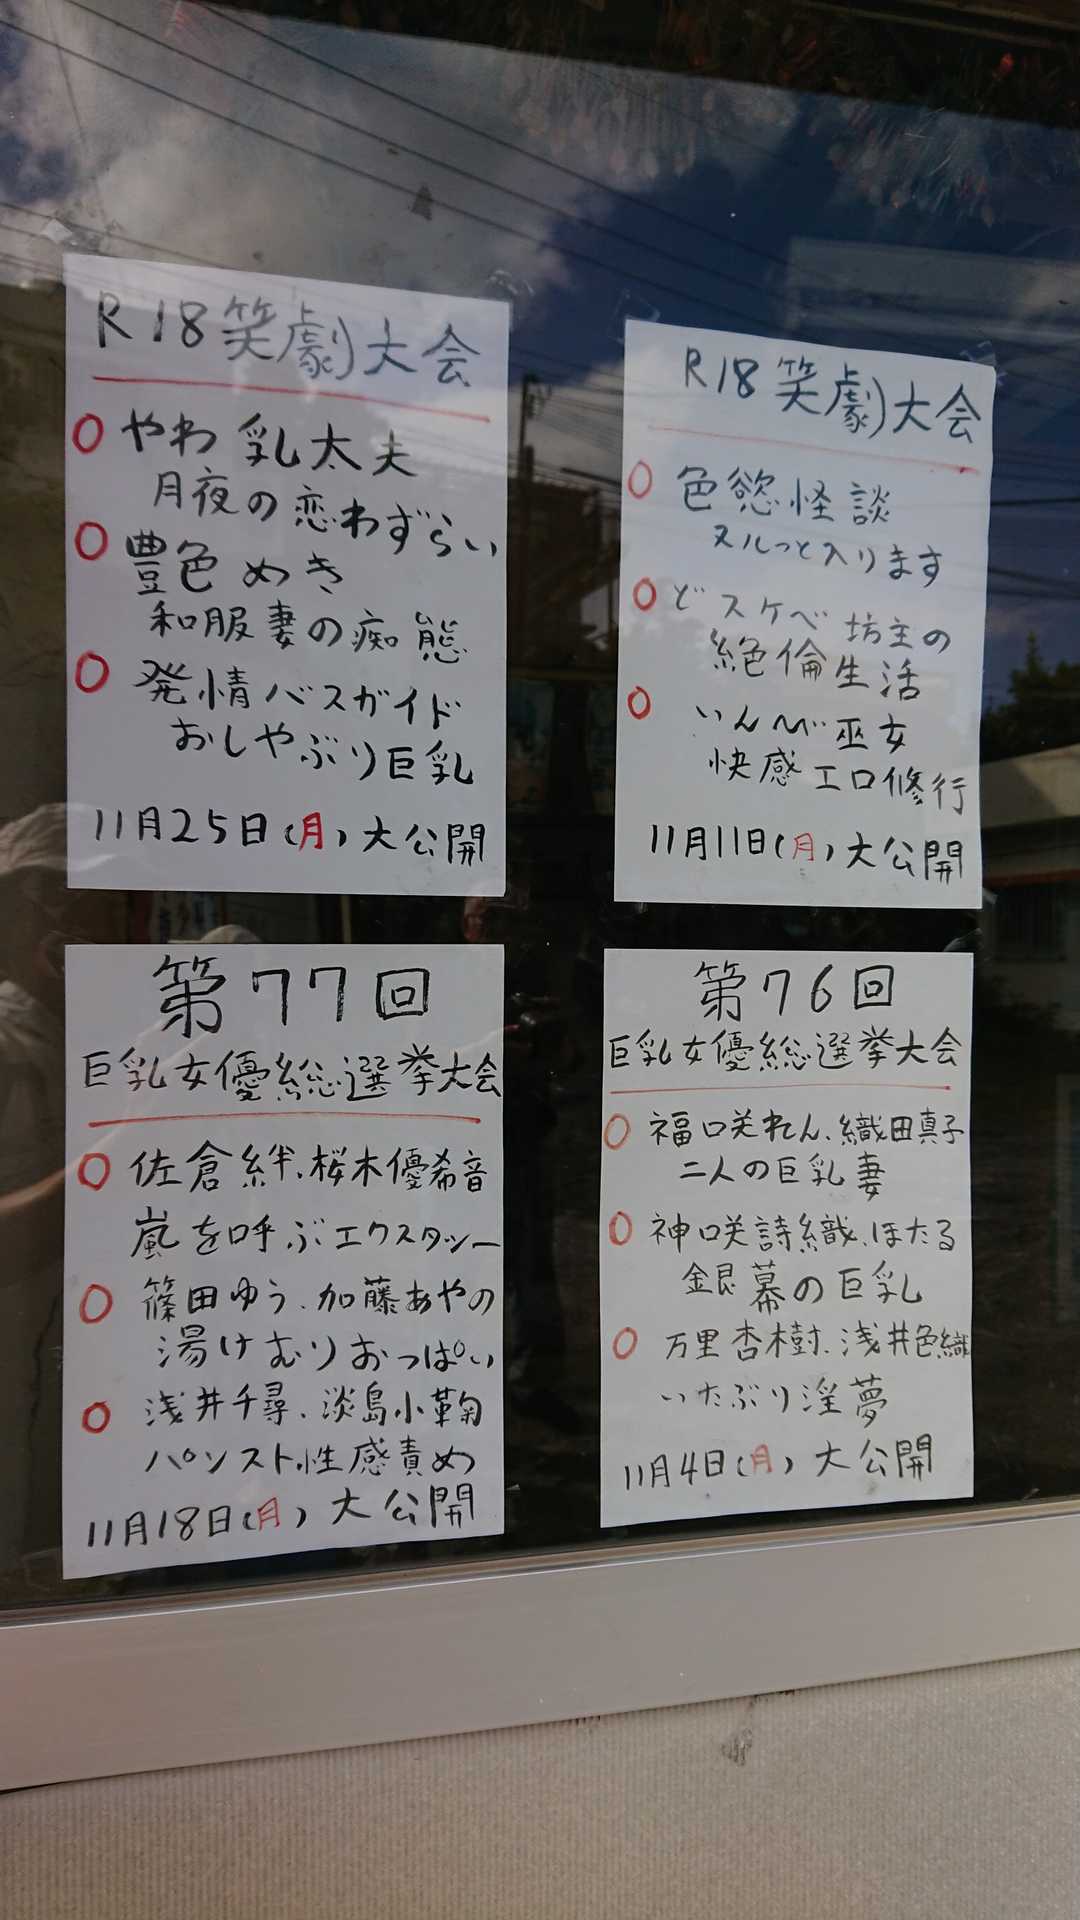 R18笑劇大会
やわ乳太夫
月夜の恋わずらい
豊色めき
和服妻の痴態
発情バスガイド
おしゃぶり巨乳
11月25日(月)大公開
R18笑劇大会
色慾怪談
ヌルっと入ります
どスケベ坊主の
絶倫生活
いんぺい巫女
快感エロ修行
11月11日(月)大公開
第77回
巨乳女優総選挙大会
佐倉絆、桜木優希音
嵐を呼ぶエクスタシー
篠田ゆう、加藤あやの
湯けむりおっぱい
浅井千尋、淡島小鞠
パンスト性感責め
11月18日(月)大公開
第76回
巨乳女優総選挙大会
福咲れん、織田真子
二人の巨乳妻
神咲詩織、ほたる
銀幕の巨乳
万里杏樹、浅井色織
いたぶり淫夢
11月4日(月)大公開